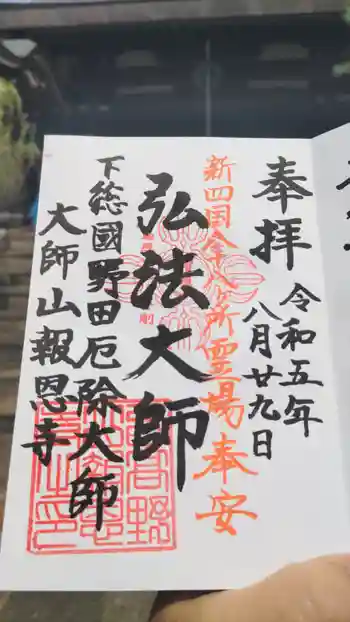 奉拝
令和五年
八月廿九日
新四国八十八ヶ所霊場奉安
弘法大師
下総國野田厄除大師
大師山報恩寺